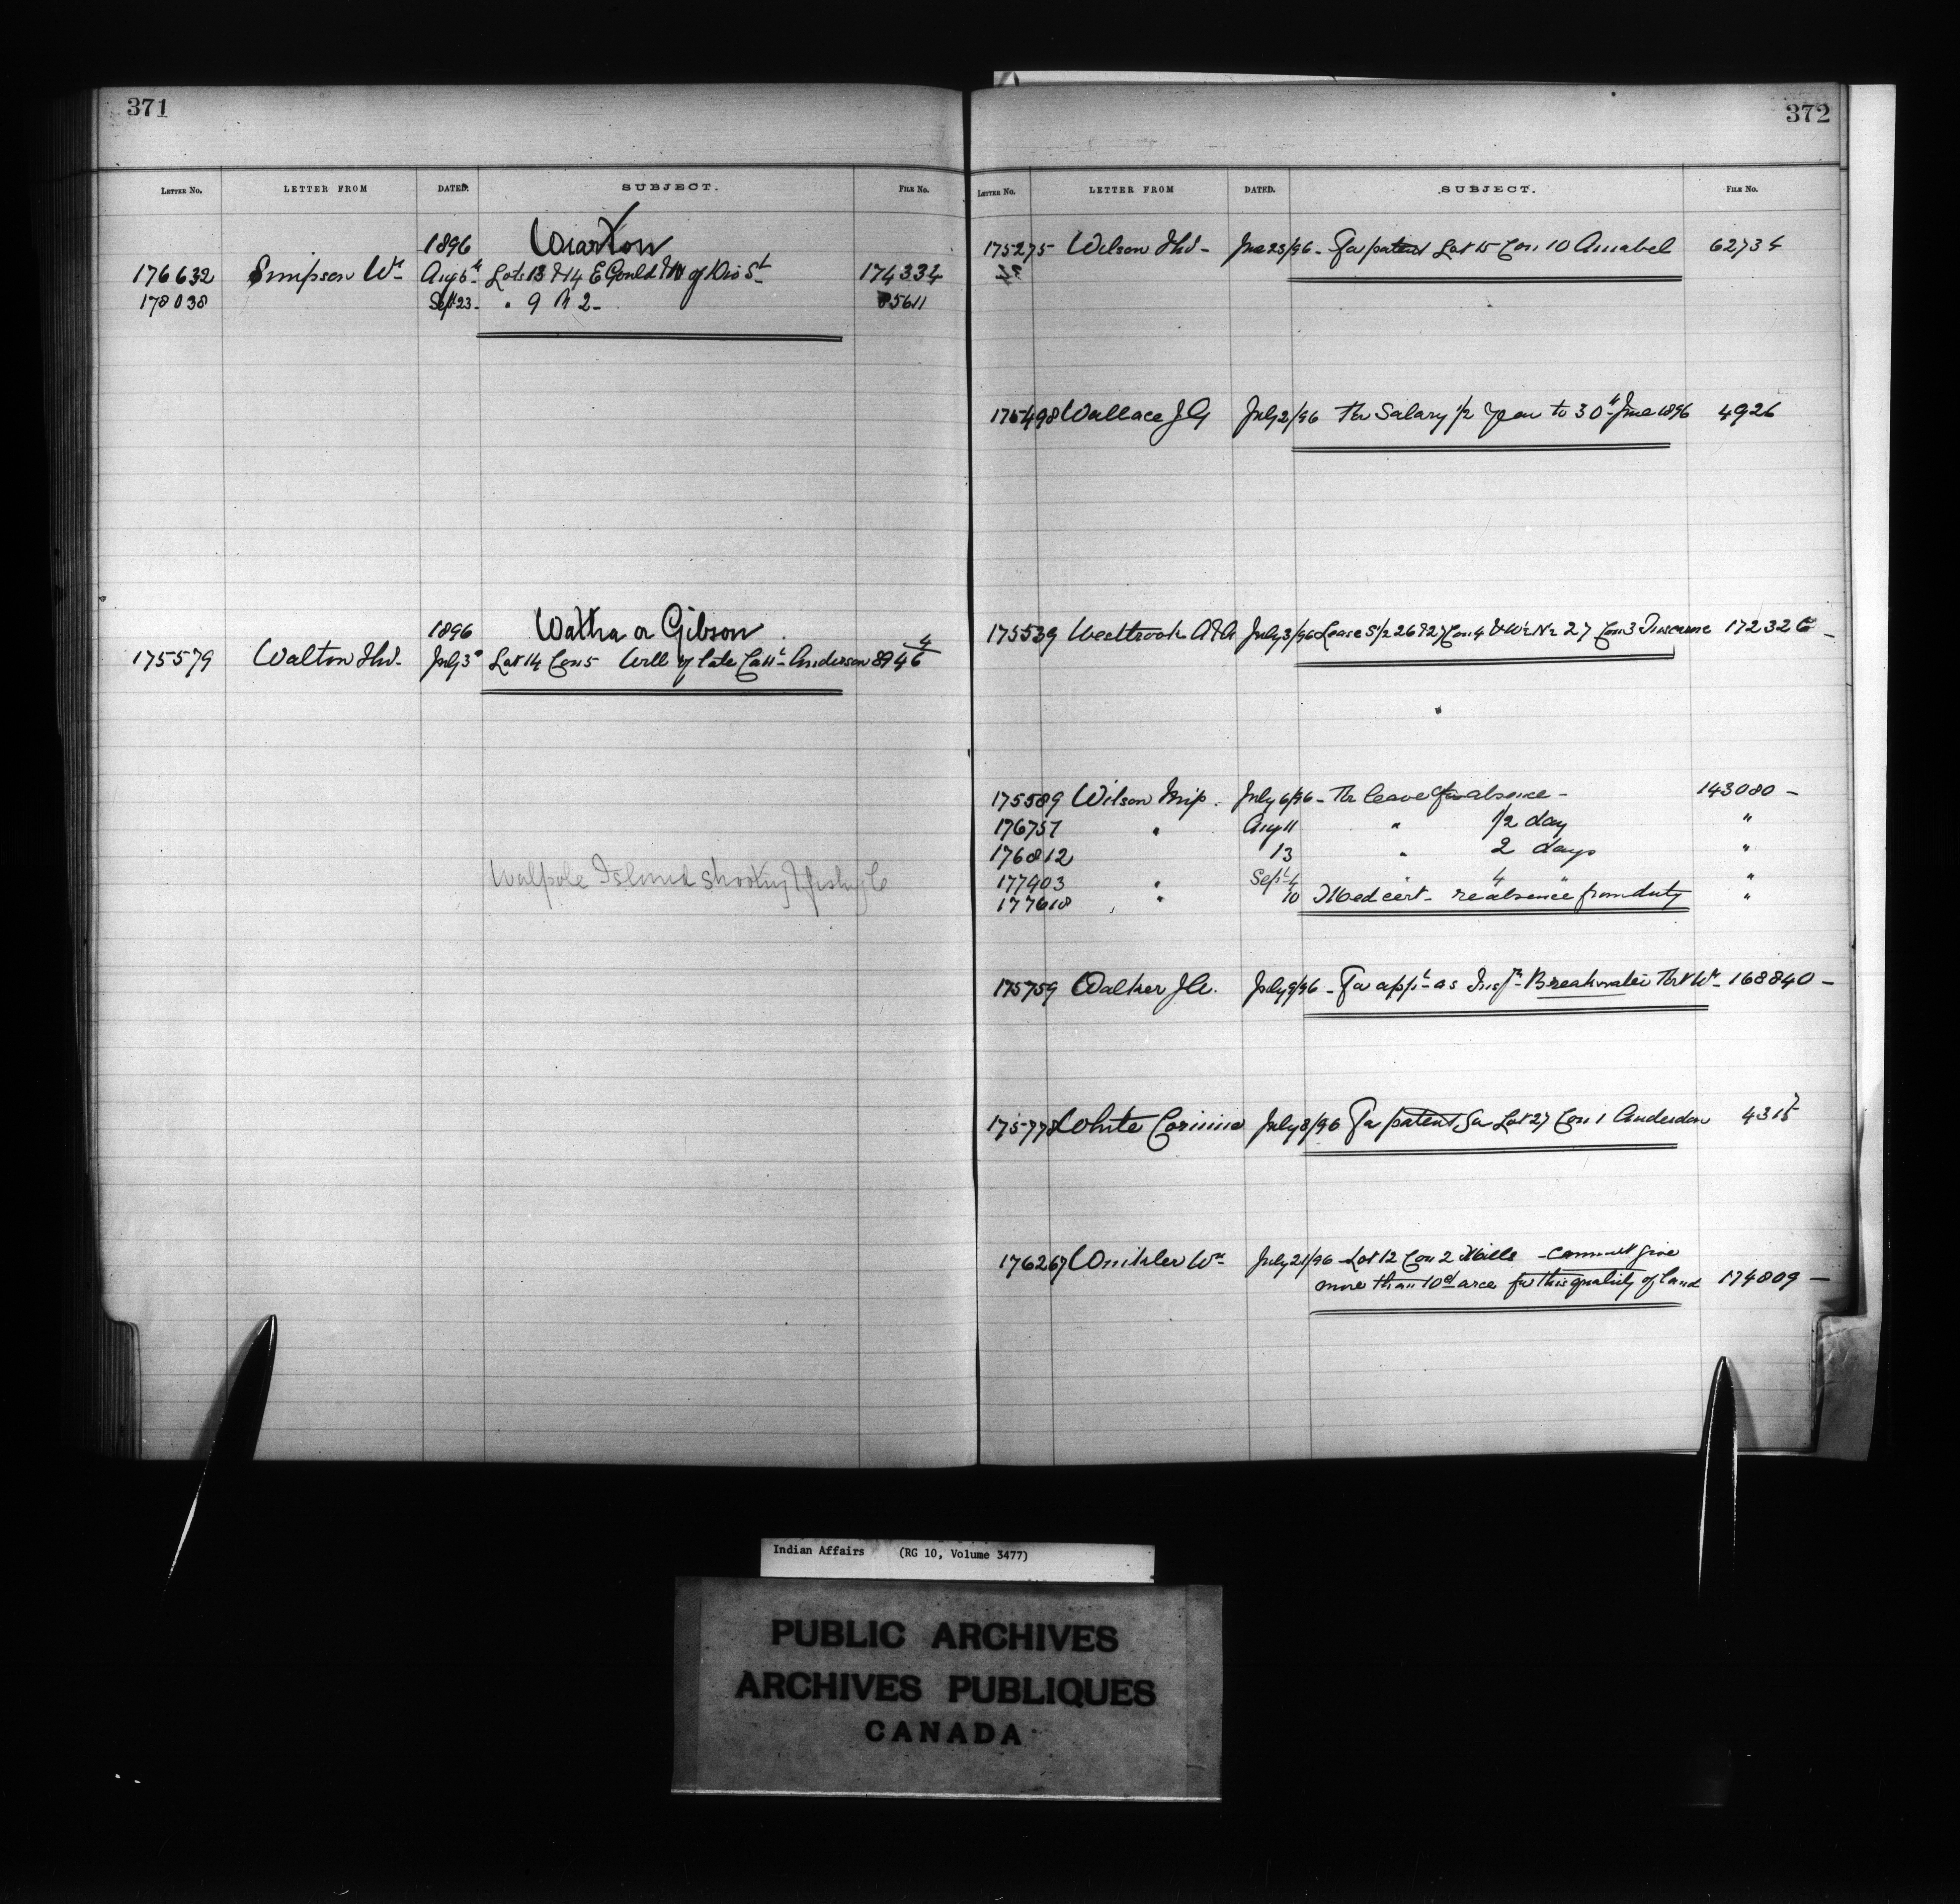 371
LETTER No. LETTER FROM DATED. SUBJECT. FILE No.
1896 Wiarton
176632 Simpson Wm Aug 5th Lots 13 & 14 E Gould & W of Div St 174334
178038 Sept 23 - " 9 R 2 - 85611
1896 Wattra or Gibson
175579 Walton Thos - July 3d Lot 14 Con 5 Will of late Cath Anderson 8946 4
Walpole Island Shooting & fishing C
372
LETTER No. LETTER FROM DATED. SUBJECT. FILE No.
175275 Wilson Thos - June 23/96 - For patent Lot 15 Con 10 Amabel 62734
175498 Wallace J G July 2/96 The Salary 1/2 year to 30th June 1896 4926
175539 Westbrook A & A July 3/96 Lease S 1/2 26 & 27 Con 4 & W 1/2 N 1/2 27 Con 3 172326 -
175589 Wilson July 6/96 - The leave of absence - 143080 -
176757 " Aug 11 " 1/2 day "
176812 13 " 2 days "
177403 " Sept 4 " 4 " "
177618 " 10 Med cert - re absence from duty "
175759 Walker J July 9/96 - For appt as Insp - Breakwater 168840 -
175778 White Corinne July 8/96 For patent for Lot 27 Con 1 Anderdon 4315
176267 Wm July 21/96 - Lot 12 Con 2 Mills - cannot give
more than 10 cts acre for this quality of land 174809 -
Indian Affairs (RG 10, Volume 3477)
PUBLIC ARCHIVES
ARCHIVES PUBLIQUES
CANADA